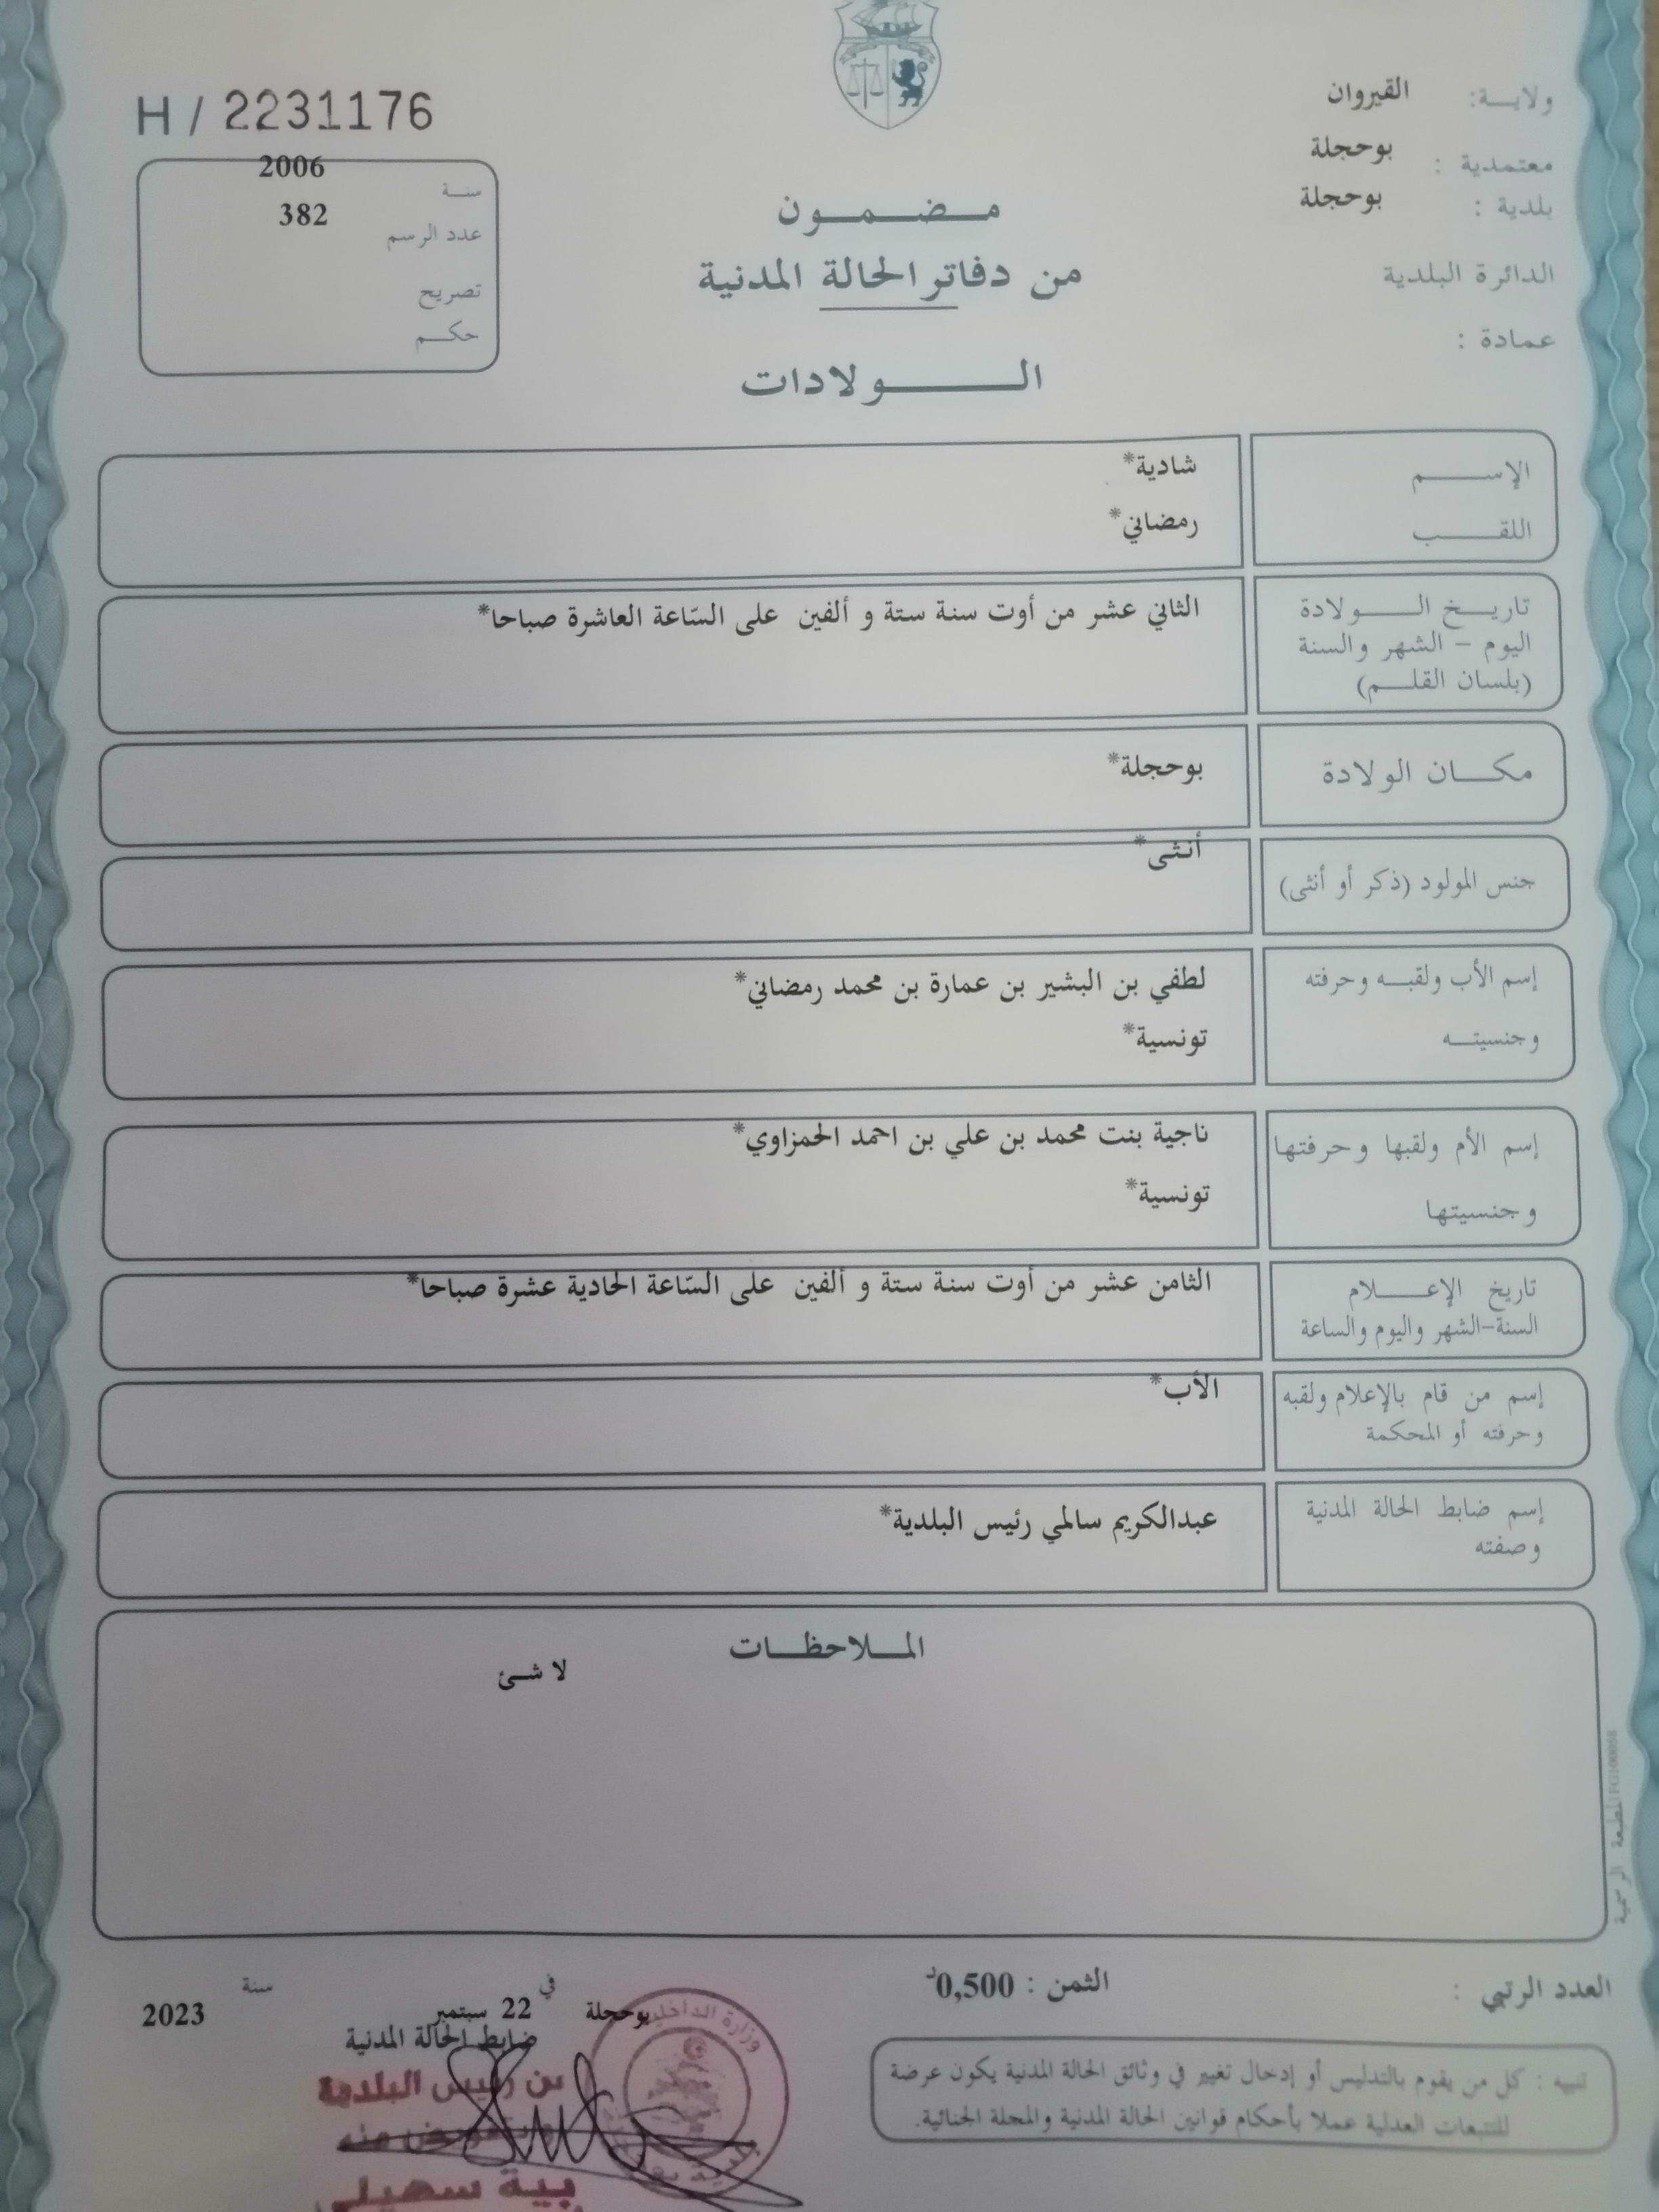 H / 2231176
ولايـة: القيروان
معتمدية : بوحجلة
بلدية : بوحجلة
الدائرة البلدية
عمادة :
سنـة 2006
عدد الرسم 382
تصريح
حكـم
مـضـمـون
من دفاتر الحالة المدنية
الـولادات
الإسـم شادية*
اللقـب رمضاني*
تاريـخ الـولادة
اليوم - الشهر والسنة
(بلسان القلـم)
الثاني عشر من أوت سنة ستة و ألفين على السّاعة العاشرة صباحا*
مكـان الولادة بوحجلة*
جنس المولود (ذكر أو أنثى) أنثى*
إسم الأب ولقبـه وحرفته
وجنسيتـه
لطفي بن البشير بن عمارة بن محمد رمضاني*
تونسية*
إسم الأم ولقبها وحرفتها
وجنسيتها
ناجية بنت محمد بن علي بن احمد الحمزاوي*
تونسية*
تاريخ الإعـلام
السنة-الشهر واليوم والساعة
الثامن عشر من أوت سنة ستة و ألفين على السّاعة الحادية عشرة صباحا*
إسم من قام بالإعلام ولقبه
وحرفته أو المحكمة
الأب*
إسم ضابط الحالة المدنية
وصفته
عبدالكريم سالمي رئيس البلدية*
الملاحظـات
لا شئ
المطبعة الرسمية
العدد الرتبي :
الثمن : 0,500د
بوحجلة في 22 سبتمبر سنة 2023
ضابط الحالة المدنية
عن رئيس البلدية
وبتفويض منه
بية سهيلي
وزارة الداخلية
تنبيه : كل من يقوم بالتدليس أو إدخال تغيير في وثائق الحالة المدنية يكون عرضة
للتتبعات العدلية عملا بأحكام قوانين الحالة المدنية والمجلة الجنائية.